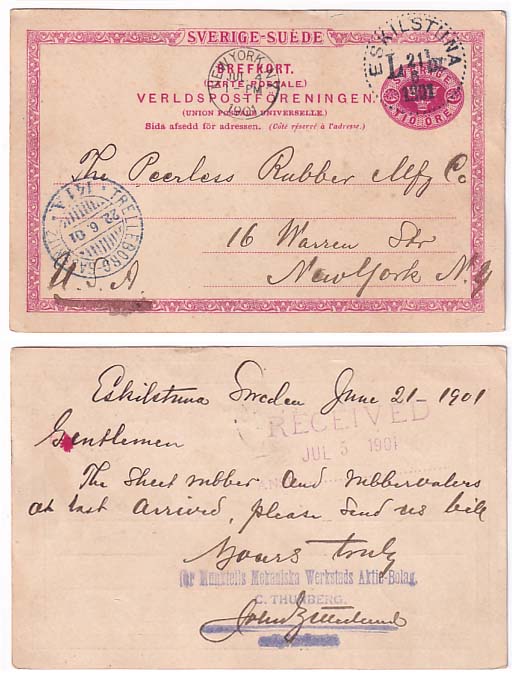 SVERIGE-SUÈDE
BREFKORT.
(CARTE POSTALE.)
VERLDSPOSTFÖRENINGEN
(UNION POSTALE UNIVERSELLE.)
Sida afsedd för adressen. (Côté réservé à l'adresse.)
ESKILSTUNA
21
1901
TIO ÖRE
NEW YORK, N.Y.
JUL 4
PM
1901
The Peerless Rubber Mfg Co
16 Warren Str
New York N.Y
U.S.A.
TRELLEBORG-SASSNITZ
141 A
22.6.01
Eskilstuna Sweden June 21 - 1901
RECEIVED
JUL 5 1901
Gentlemen
The sheet rubber and rubber
at last arrived, please send us bill
Yours truly
för Munktells Mekaniska Werkstads Aktie-Bolag.
C. THUNBERG.
John